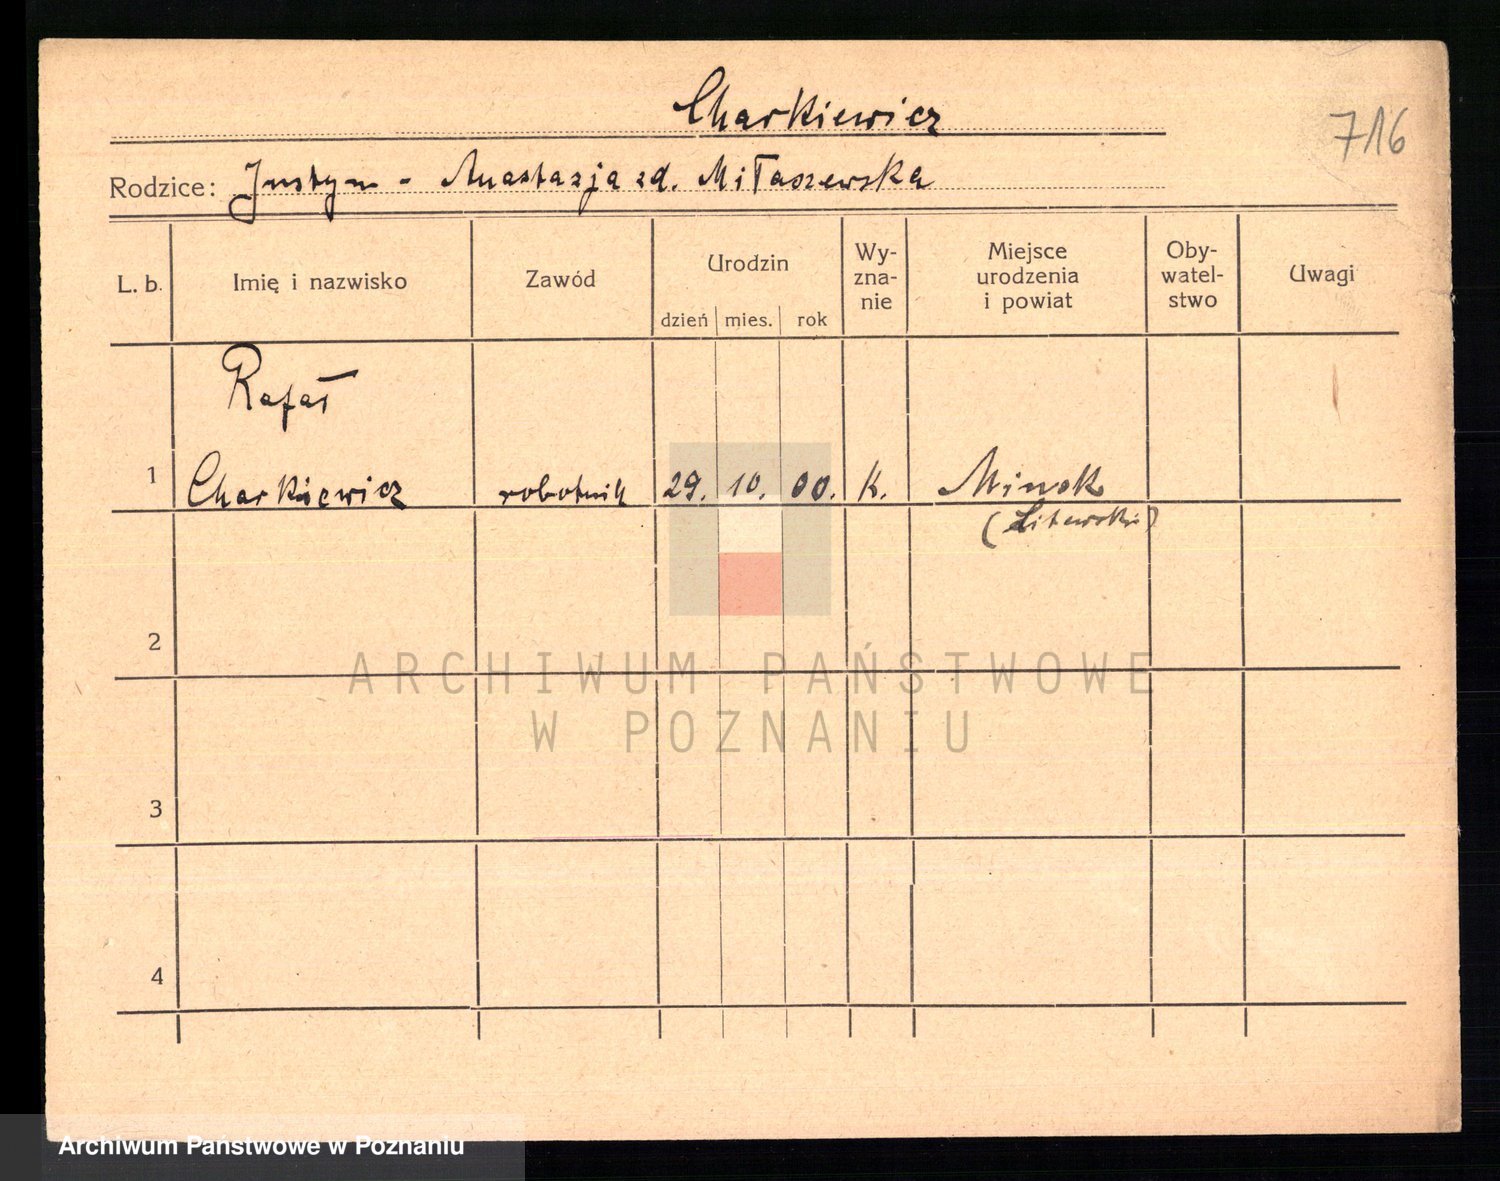 Charkiewicz
716
Rodzice: Justyn - Anastazja zd. Miłaszewska
L. b. Imię i nazwisko Zawód Urodzin dzień mies. rok Wy- zna- nie Miejsce urodzenia i powiat Oby- watel- stwo Uwagi
Rafał
1 Charkiewicz robotnik 29. 10. 00. K. Minsk
(Litewski)
2
ARCHIWUM PAŃSTWOWE
W POZNANIU
3
4
Archiwum Państwowe w Poznaniu